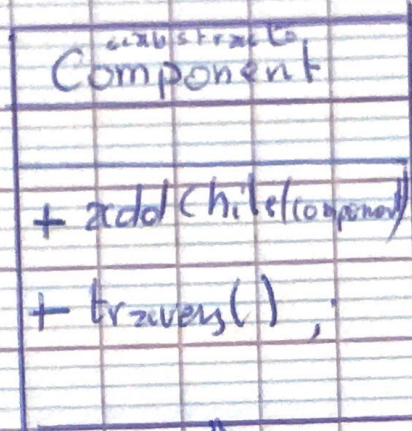 <<abstract>>
Component
+ addChile(component)
+ travers()